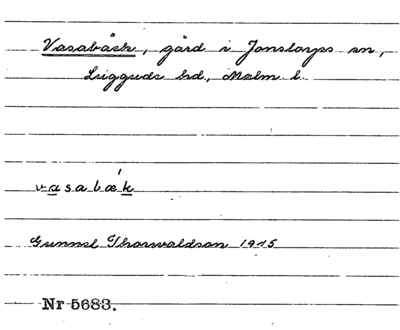 Vasabäck, gård i Jonstorps sn,
Luggude hd, Malm. l.
vasabæ'k
Gunnel Thorwaldson 1915
Nr 5683.